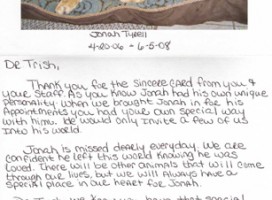 Jonah Tyrell
4-20-06 - 6-5-08
Dr Trish,
Thank you for the sincere card from you &
your staff. As you know Jonah had his own unique
personality. When we brought Jonah in for his
appointments you had your own special way
with him. He would only invite a few of us
into his world.
Jonah is missed dearly everyday. We are
confident he left this world knowing he was
loved. There will be other animals that will come
through our lives, but we will always have a
special place in our heart for Jonah.